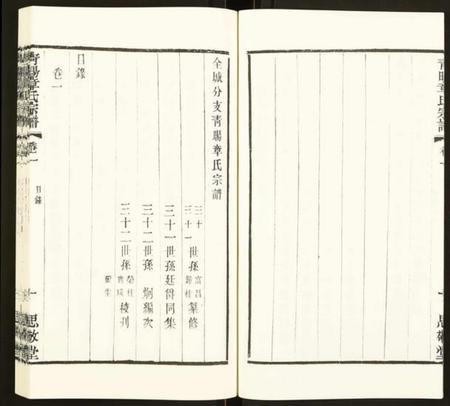 青暘章氏宗譜
卷一
全城分支青暘章氏宗譜
三十
三十一
世孫
纂修
三十一世孫廷得同集
三十二世孫炯編次
三十二世孫
榮桂
稜刋
目錄
卷一
青暘章氏宗譜
卷一
目錄
一
思敬堂
一
思敬堂